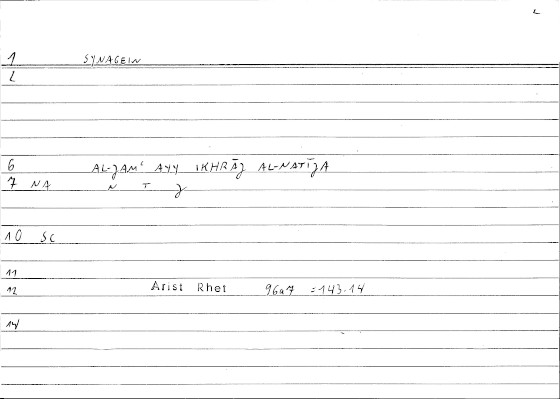 1 SYNAGEIN
2
6 AL-ǦAMʿ AYY IKHRĀǦ AL-NATĪǦA
7 NA N T Ǧ
10 SC
11
12 Arist Rhet 96a7 =143.14
14